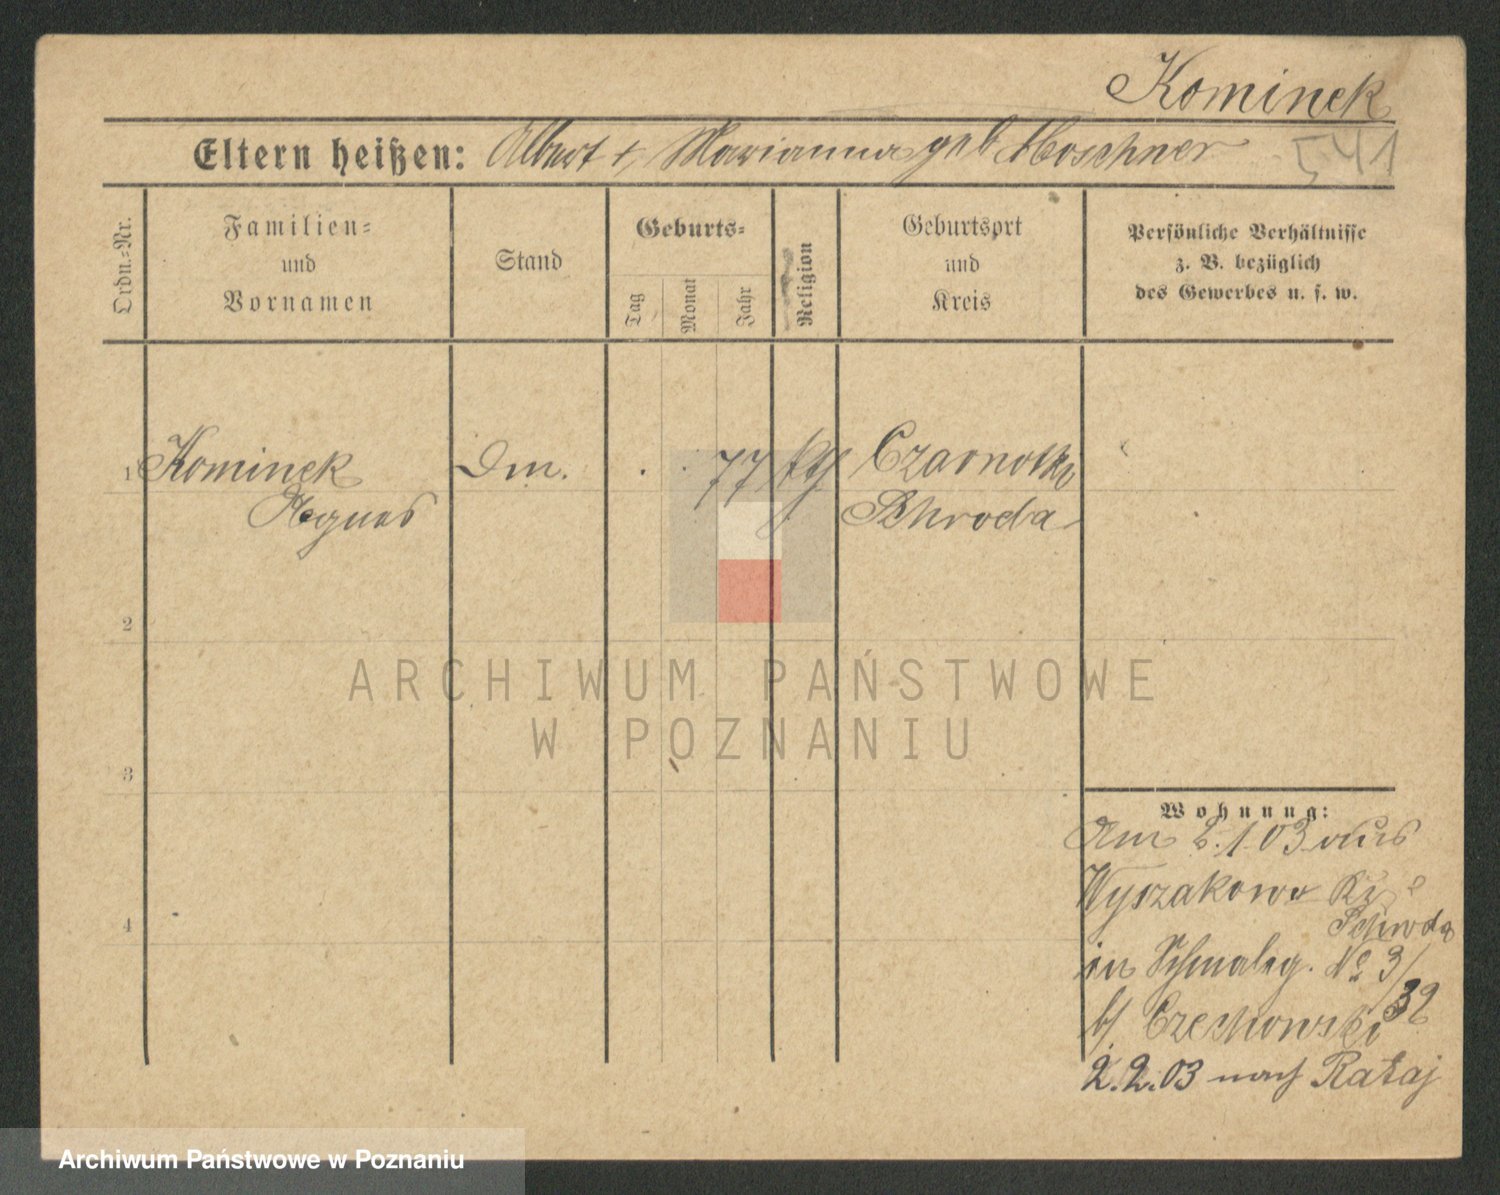 Kominek
Eltern heißen: Albert +, Marianna geb Moschner
541
Ordn.-Nr.
Familien-
und
Vornamen
Stand
Geburts-
Tag
Monat
Jahr
Religion
Geburtsort
und
Kreis
Persönliche Verhältnisse
z. B. bezüglich
des Gewerbes u. s. w.
1 Kominek Dm. 77 Czarnotki
Agnes Schroda
2
ARCHIWUM PAŃSTWOWE
W POZNANIU
3
Wohnung:
Am 2.1 03 aus
Wyszakowo Krs
Schroda
4
in Schmaleg. No 3/
32
b/ Czechowski
2.2.03 nach Rataj
Archiwum Państwowe w Poznaniu